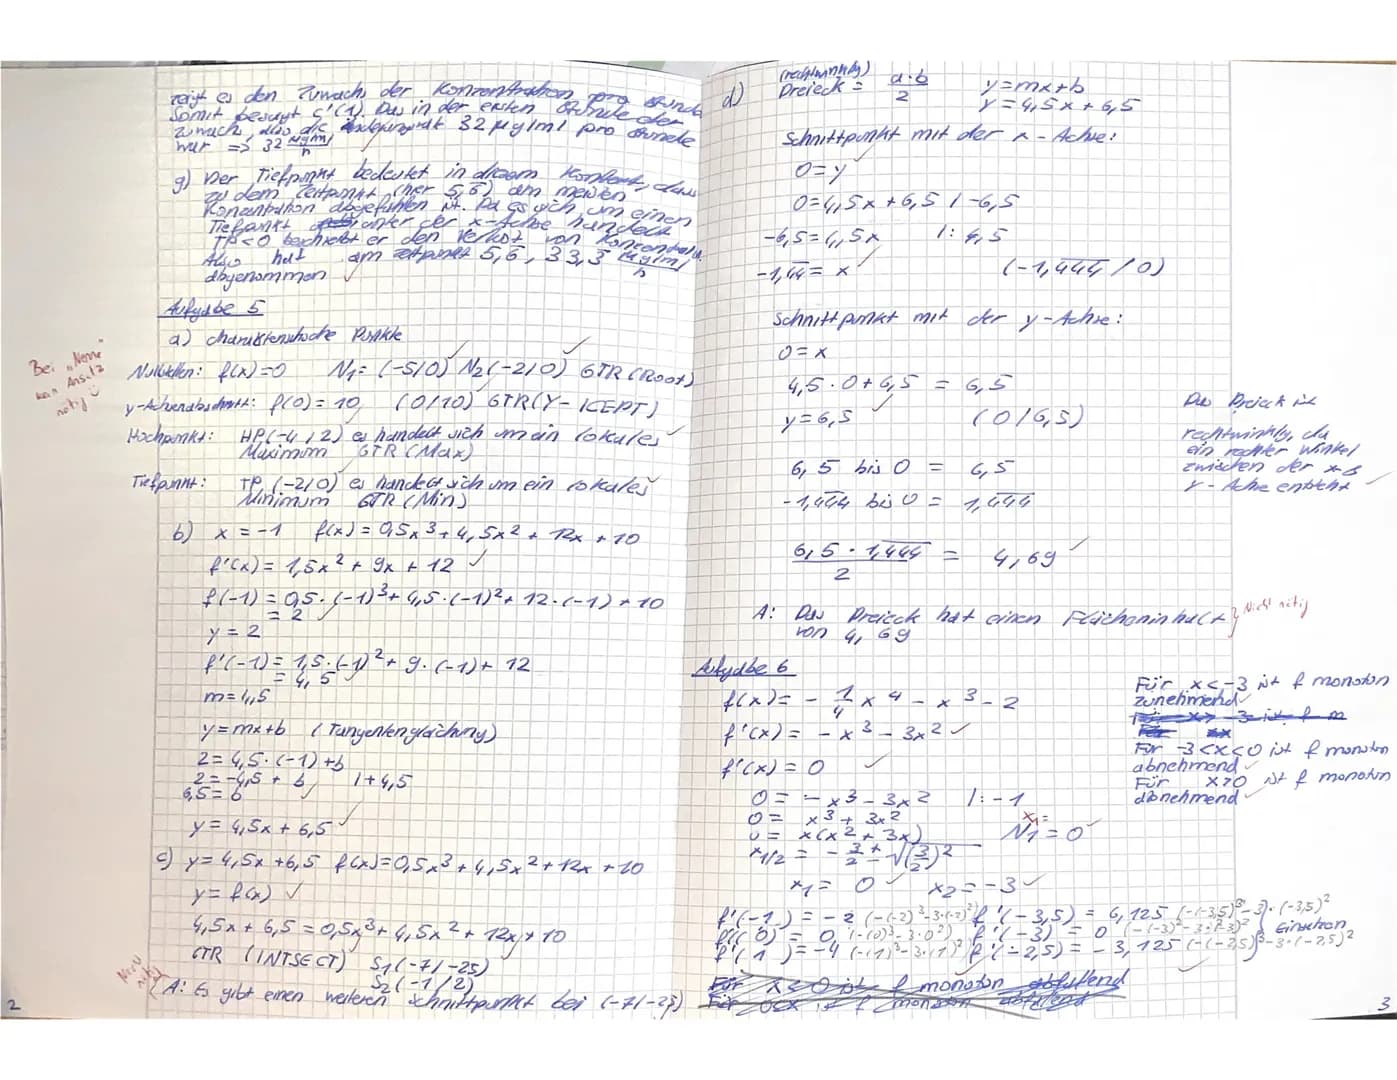 zeigt es den Zuwachs der Konzentration pro Stunde
Somit besagt c'(1). Das in der ersten Stunde der
Zuwachs, also die 32 µg/ml pro Stunde
war => 32 µg/ml/h
g) Der Tiefpunkt bedeutet in diesem Kontext, dass
zu dem Zeitpunkt (hier 5,6) am meisten
Konzentration abgefallen ist. Da es sich um einen
Tiefpunkt unter der x-Achse handelt
TP<0 beschreibt er den Verlust von Konzentration.
Also hat am Zeitpunkt 5,6, 33,3 µg/ml/h
abgenommen
Aufgabe 5
a) charakteristische Punkte
Bei "Nenne"
kein Ansatz
nötig
Nullstellen: f(x)=0 N₁=(-5/0) N₂(-2/0) GTR (Root)
y-Achsenabschnitt: f(0)=10 (0/10) GTR(Y-ICEPT)
Hochpunkt: HP(-4/2) es handelt sich um ein lokales
Maximum GTR (Max)
Tiefpunkt: TP (-2/0) es handelt sich um ein lokales
Minimum GTR (Min)
b) x = -1 f(x) = 0,5x³ + 4,5x² + 12x + 10
f'(x) = 1,5x² + 9x + 12
f(-1) = 0,5·(-1)³ + 4,5·(-1)² + 12·(-1) + 10
= 2
y = 2
f'(-1) = 1,5·(-1)² + 9·(-1) + 12
= 4,5
m = 4,5
y = mx+b (Tangentengleichung)
2 = 4,5·(-1)+b
2 = -4,5 + b |+4,5
6,5 = b
y = 4,5x + 6,5
c) y = 4,5x + 6,5 f(x) = 0,5x³ + 4,5x² + 12x + 10
y = f(x)
4,5x + 6,5 = 0,5x³ + 4,5x² + 12x + 10
GTR (INTSECT) S₁(-7/-25)
S₂(-1/2)
Nicht nötig
A: Es gibt einen weiteren Schnittpunkt bei (-7/-25)
2
d) (rechtwinklig)
Dreieck = a·b/2 y = mx+b
y = 4,5x + 6,5
Schnittpunkt mit der x-Achse:
0 = y
0 = 4,5x + 6,5 |-6,5
-6,5 = 4,5x |:4,5
-1,44 = x (-1,444/0)
Schnittpunkt mit der y-Achse:
0 = x
4,5·0 + 6,5 = 6,5
y = 6,5 (0/6,5)
6,5 bis 0 = 6,5
-1,444 bis 0 = 1,444
6,5·1,444/2 = 4,69
Das Dreieck ist
rechtwinklig, da
ein rechter Winkel
zwischen der x &
y-Achse entsteht
A: Das Dreieck hat einen Flächeninhalt
von 4,69
Nicht nötig
Aufgabe 6
f(x) = -1/4x⁴ - x³ - 2
f'(x) = -x³ - 3x²
f'(x) = 0
0 = -x³ - 3x² |:-1
0 = x³ + 3x²
0 = x(x² + 3x) x₁=
N₁ = 0
x₁/₂ = -3/2 ± √(3/2)²
x₁ = 0 x₂ = -3
Für x<-3 ist f monoton
zunehmend
Für -3<x<0 ist f monoton
abnehmend
Für x>0 ist f monoton
abnehmend
f'(-1) = -2 (-(-2)³-3·(-2)²) f'(-3,5) = 6,125 (-(-3,5)³-3)·(-3,5)²
f'(0) = 0 (-(0)³-3·0²) f'(-3) = 0 (-(-3)³-3·(-3)²) Einsetzen
f'(1) = -4 (-(1)³-3·(1)²) f'(-2,5) = -3,125 (-(-2,5)³-3·(-2,5)²
Für x<0 ist f monoton abfallend
Für 0<x ist f monoton abfallend
3